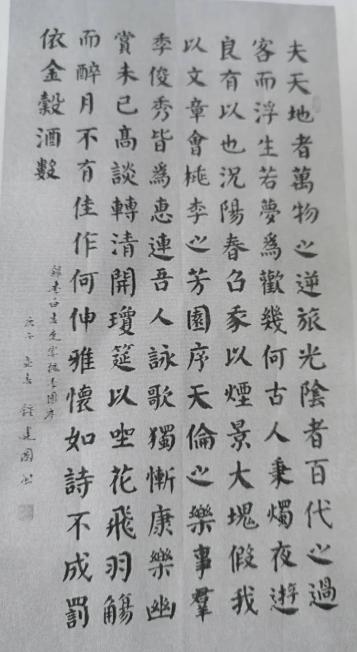 夫天地者萬物之逆旅光陰者百代之過
客而浮生若夢為歡幾何古人秉燭夜遊
良有以也況陽春召我以煙景大塊假我
以文章會桃李之芳園序天倫之樂事羣
季俊秀皆為惠連吾人詠歌獨慚康樂幽
賞未已高談轉清開瓊筵以坐花飛羽觴
而醉月不有佳作何伸雅懷如詩不成罰
依金穀酒數
錄李白春夜宴桃李園序